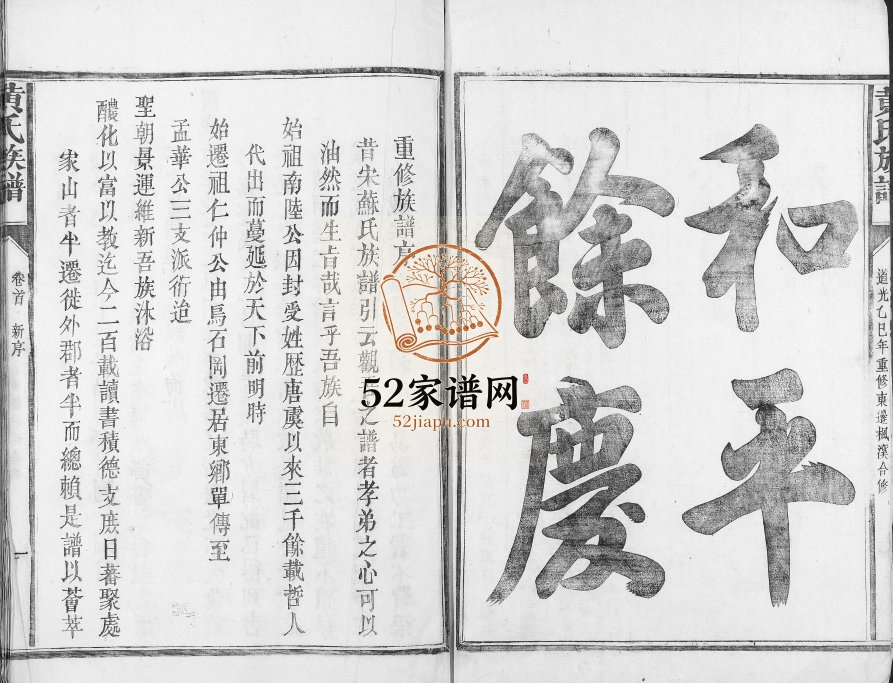 黃氏族譜
道光乙巳年重修東邊楓漢合修
和平
餘慶
重修族譜序
昔宋蘇氏族譜引云觀吾之譜者孝弟之心可以
油然而生旨哉言乎吾族自
始祖南陸公因封受姓歷唐虞以來三千餘載哲人
代出而蔓延於天下前明時
始遷祖仁仲公由馬石岡遷居東鄉單傳至
孟華公三支派衍迨
聖朝景運維新吾族沐浴
醲化以富以教迄今二百載讀書積德支庶日蕃聚處
家山者半遷徙外郡者半而總賴是譜以薈萃
黃氏族譜
卷首 新序
一
52家谱网
52jiapu.com